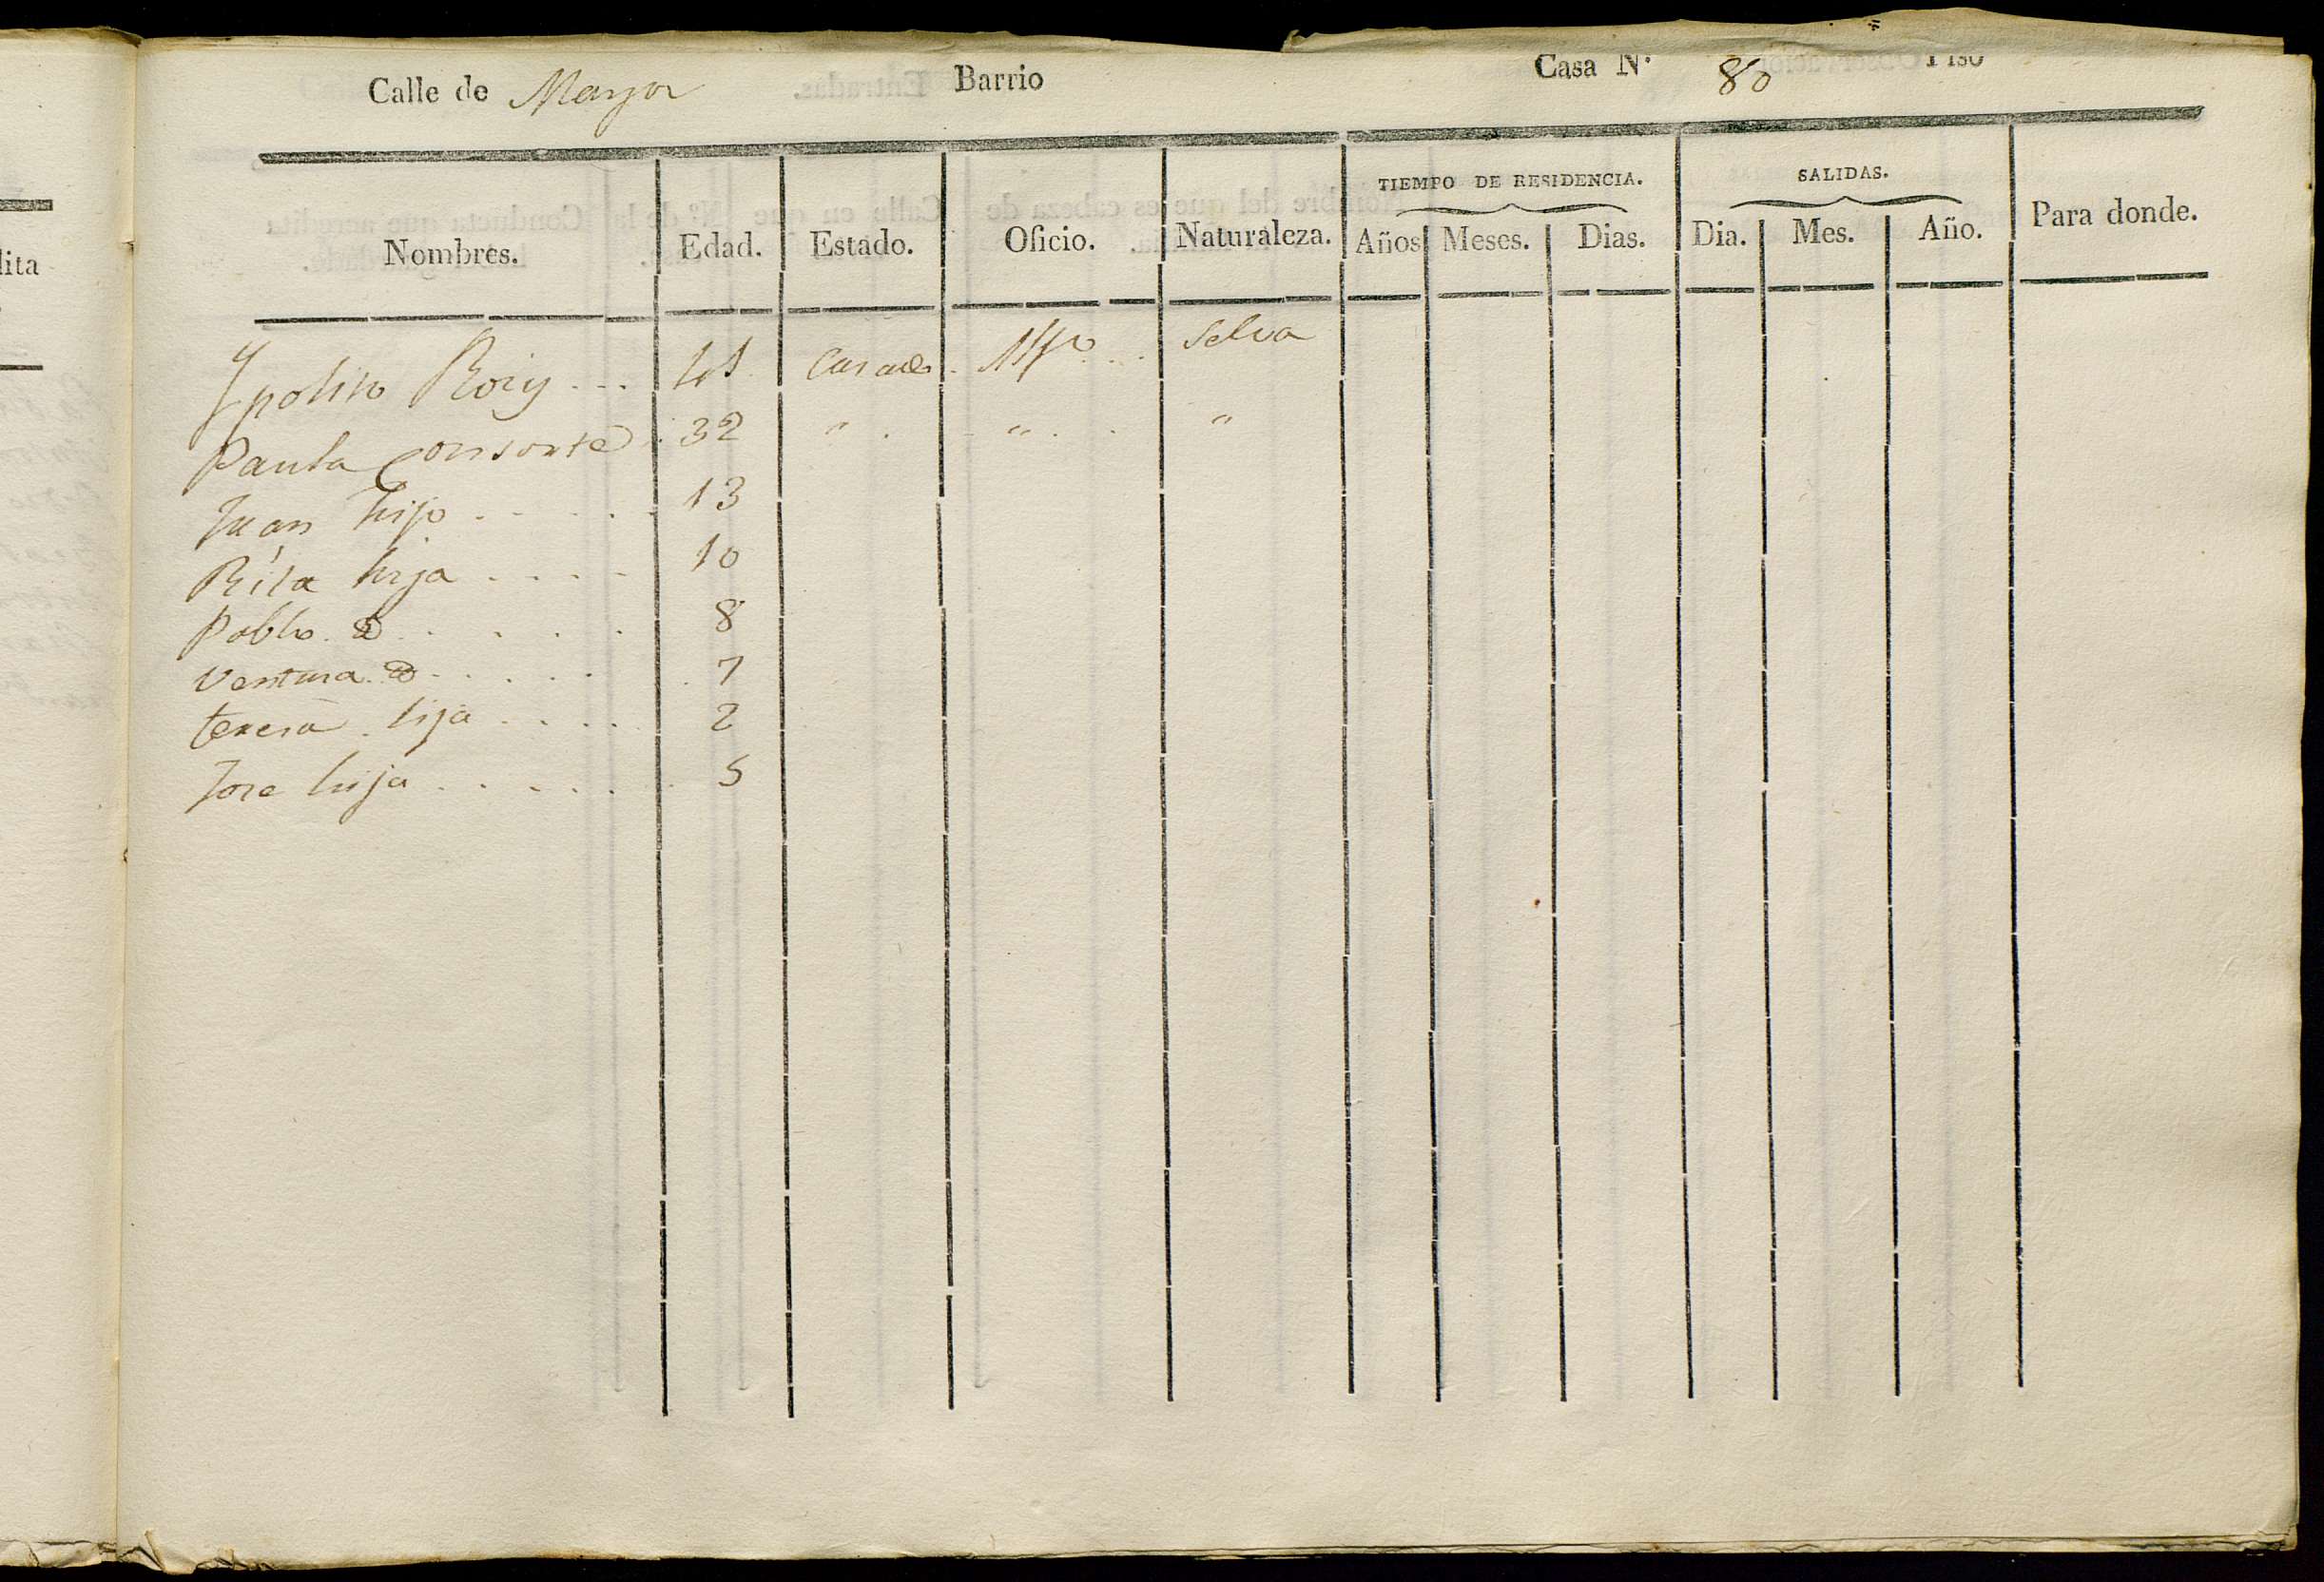 Calle de Mayor Barrio Casa N. 80 Piso
Nombres. Edad. Estado. Oficio. Naturaleza. TIEMPO DE RESIDENCIA. Años Meses. Dias. SALIDAS. Dia. Mes. Año. Para donde.
Ypolito Roig 41 Casado Selva
Paula Consorte 32 " " "
Juan hijo 13
Rita hija 10
Pablo 8
Ventura 7
teresa hija 2
Jose hija 5
dita